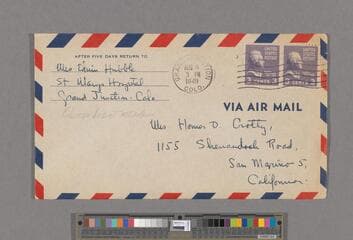 AFTER FIVE DAYS RETURN TO
Mrs Edwin Hubble
St Marys Hospital
Grand Junction. Colo
GRAND JUNCTION
3 PM
1949
COLO.
VIA AIR MAIL
Mrs. Homer D. Crotty,
1155 Shenandoah Road,
San Marino 5,
California.